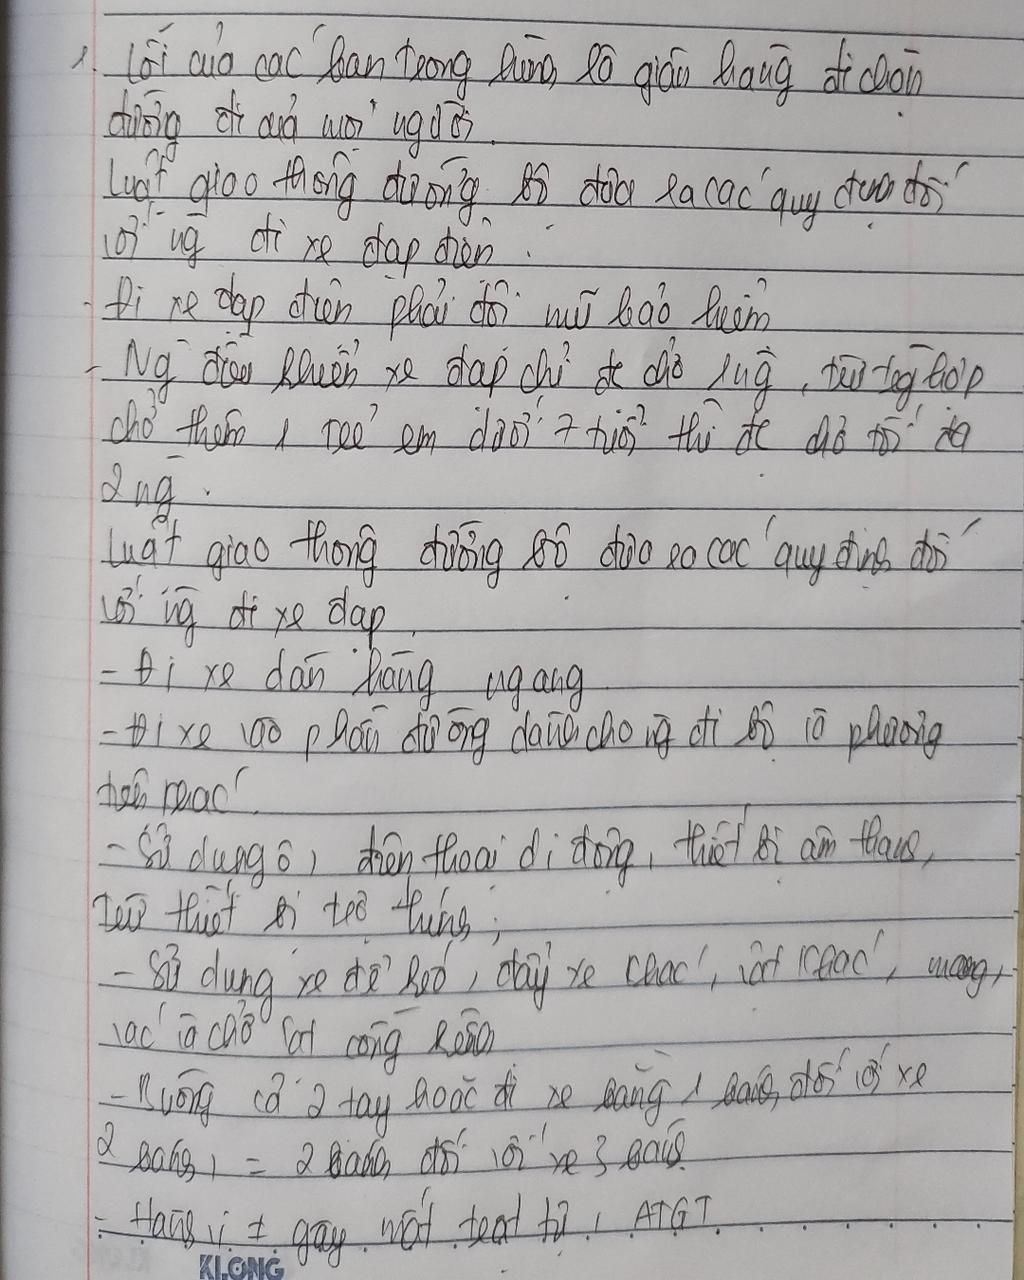 1. Lỗi của các bạn trong hùnh là giản hàng đi chắn
đường đi của mọi người.
Luật giao thông đường bộ đưa ra các quy định đối
với ng đi xe đạp điện.
- Đi xe đạp điện phải đội mũ bảo hiểm
- Ng điều khiển xe đạp chỉ đc chở 1ng, trừ tng hợp
chở thêm 1 trẻ em dưới 7 tuổi thì đc chở tối đa
2ng.
Luật giao thông đường bộ đưa ra các quy định đối
với ng đi xe đạp.
- Đi xe dàn hàng ngang
- Đi xe vào phần đường dành cho ng đi bộ và phương
tiện khác.
- Sử dụng ô, điện thoại di động, thiết bị âm thanh,
trừ thiết bị trợ thính;
- Sử dụng xe để kéo, đẩy xe khác, vật khác, mang,
vác và chở vật cồng kềnh
- Buông cả 2 tay hoặc đi xe bằng 1 bánh đối với xe
2 bánh, = 2 bánh đối với xe 3 bánh.
- Hành vi ≠ gây mất trật tự, ATGT
KLONG